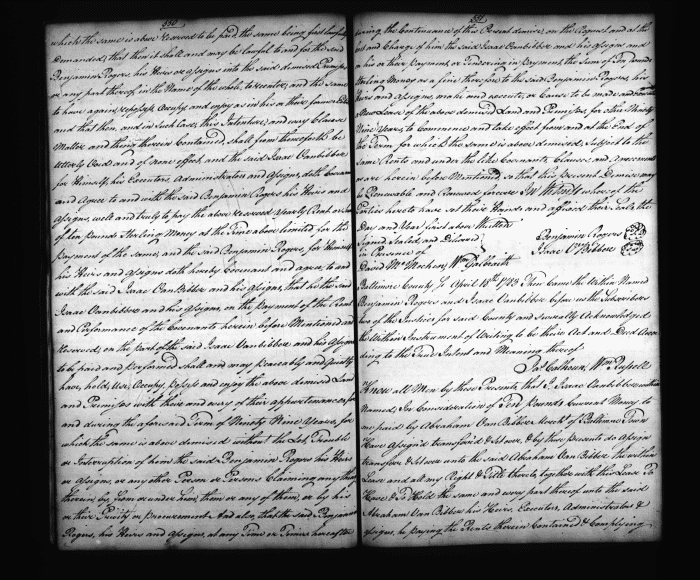 350
which the same is above reserved to be paid, the same being first lawfully
demanded, that then it shall and may be lawful to and for the said
Benjamin Rogers his Heirs or assigns into the said demised Premises
or any part thereof, in the Name of the whole, to reenter, and the same
to have again, repossess, Occupy, and enjoy as in his or their former Estate
and that then, and in such case, this Indenture, and every Clause
Matter and thing therein Contained, shall from thenceforth be
Utterly Void and of none effect, and the said Isaac Vanbibber
for Himself, his Executors, Administrators and Assigns, doth Covenant
and Agree to and with the said Benjamin Rogers his Heirs and
Assigns, well and truly to pay the above reserved Yearly Rent or Sum
of ten pounds Sterling Money at the Time above limited, for the
payment of the same, and the said Benjamin Rogers for Himself
his Heirs and Assigns doth hereby Covenant and agree, to and
with the said Isaac Vanbibber and his Assigns, that he the said
Isaac Vanbibber and his Assigns, on the Payment of the Rent
and Performance of the Covenants herein before Mentioned and
reserved, on the part of the said Isaac Vanbibber and his Assigns
to be paid and performed shall and may peaceably and quietly
have, hold, Use, Occupy, possess and enjoy the above demised Land
and Premises with their and every of their appurtenances for
and during the aforesaid Term of Ninety Nine Years, for
which the same is above demised without the Let, Trouble
or Interruption of him the said Benjamin Rogers his Heirs
or Assigns, or any other Person or Persons Claiming any thing
therein, by, from or under him, them or any of them, or by his
or their Privity or procurement. And also, that the said Benjamin
Rogers, his Heirs and Assigns, at any Time or Times hereafter
351
during the Continuance of this Present demise, on the Request and at the
Cost and Charge of him the said Isaac Vanbibber and his Assigns and
on his or their payment or Tendering in Payment the Sum of Ten Pounds
Sterling Money as a fine therefor, to the said Benjamin Rogers, his
Heirs and Assigns, make and execute, or Cause to be made and executed
a New Lease of the above demised Land and Premises, for other Ninety
Nine Years, to Commence and take effect from and at the End of
the Term for which the same is above demised, Subject to the
same Rents and under the like Covenants, Clauses and Agreements
were herein before Mentioned so that this present Demise may
be Renewable and Renewed forever. In Witness whereof the
Parties hereto have set their Hands and affixed their Seals the
Day and Year first above Written
Signed Sealed and Delivered Benjamin Rogers
in Presence of Isaac Vn Bibber
David McMechen, Wm Galbraith
Baltimore County Ss April 18th 1783 Then Came the Within Named
Benjamin Rogers and Isaac Vanbibber before us the Subscribers
two of the Justices for said County and Severally Acknowledged
the Within Instrument of Writing to be their Act and Deed Accor
ding to the True Intent and Meaning thereof
Jas Calhoun, Wm Russell
Know all Men by these Presents, that I, Isaac Vanbibber within
Named, for Consideration of Ten pounds Current Money to
me paid by Abraham Van Bibber Merchant of Baltimore Town
Have Assign'd transferr'd & Set over, & by these presents do Assign
transfer & Set over unto the said Abraham Van Bibber The within
Lease and all my Right & Title thereto, together with this Lease To
Have & To Hold the same and every part thereof unto the said
Abraham Van Bibber his Heirs, Executors, Administrators &
Assigns, he paying the Rents herein Contained & Complying